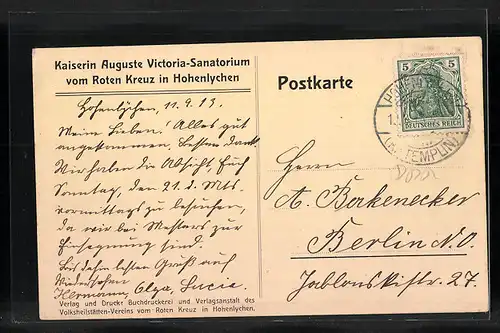 Kaiserin Auguste Victoria-Sanatorium
vom Roten Kreuz in Hohenlychen
Hohenlychen, 11. 9. 13.
Meine Lieben! Alles gut
angekommen, besten Dank.
Wir haben die Absicht, Euch
Sonntag, den 21. d. Mts.
vormittags zu besuchen,
da wir bei zur
Einsegnung sind.
Bis dahin besten Gruß auf
Wiedersehen
Hermann, Olga, Lucie.
Verlag und Druck: Buchdruckerei und Verlagsanstalt des
Volksheilstätten-Vereins vom Roten Kreuz in Hohenlychen.
Postkarte
5 5
DEUTSCHES REICH
(Kr. TEMPLIN)
Herrn
A. Berkenecker
Berlin N.O.
Jablonskistr. 27.